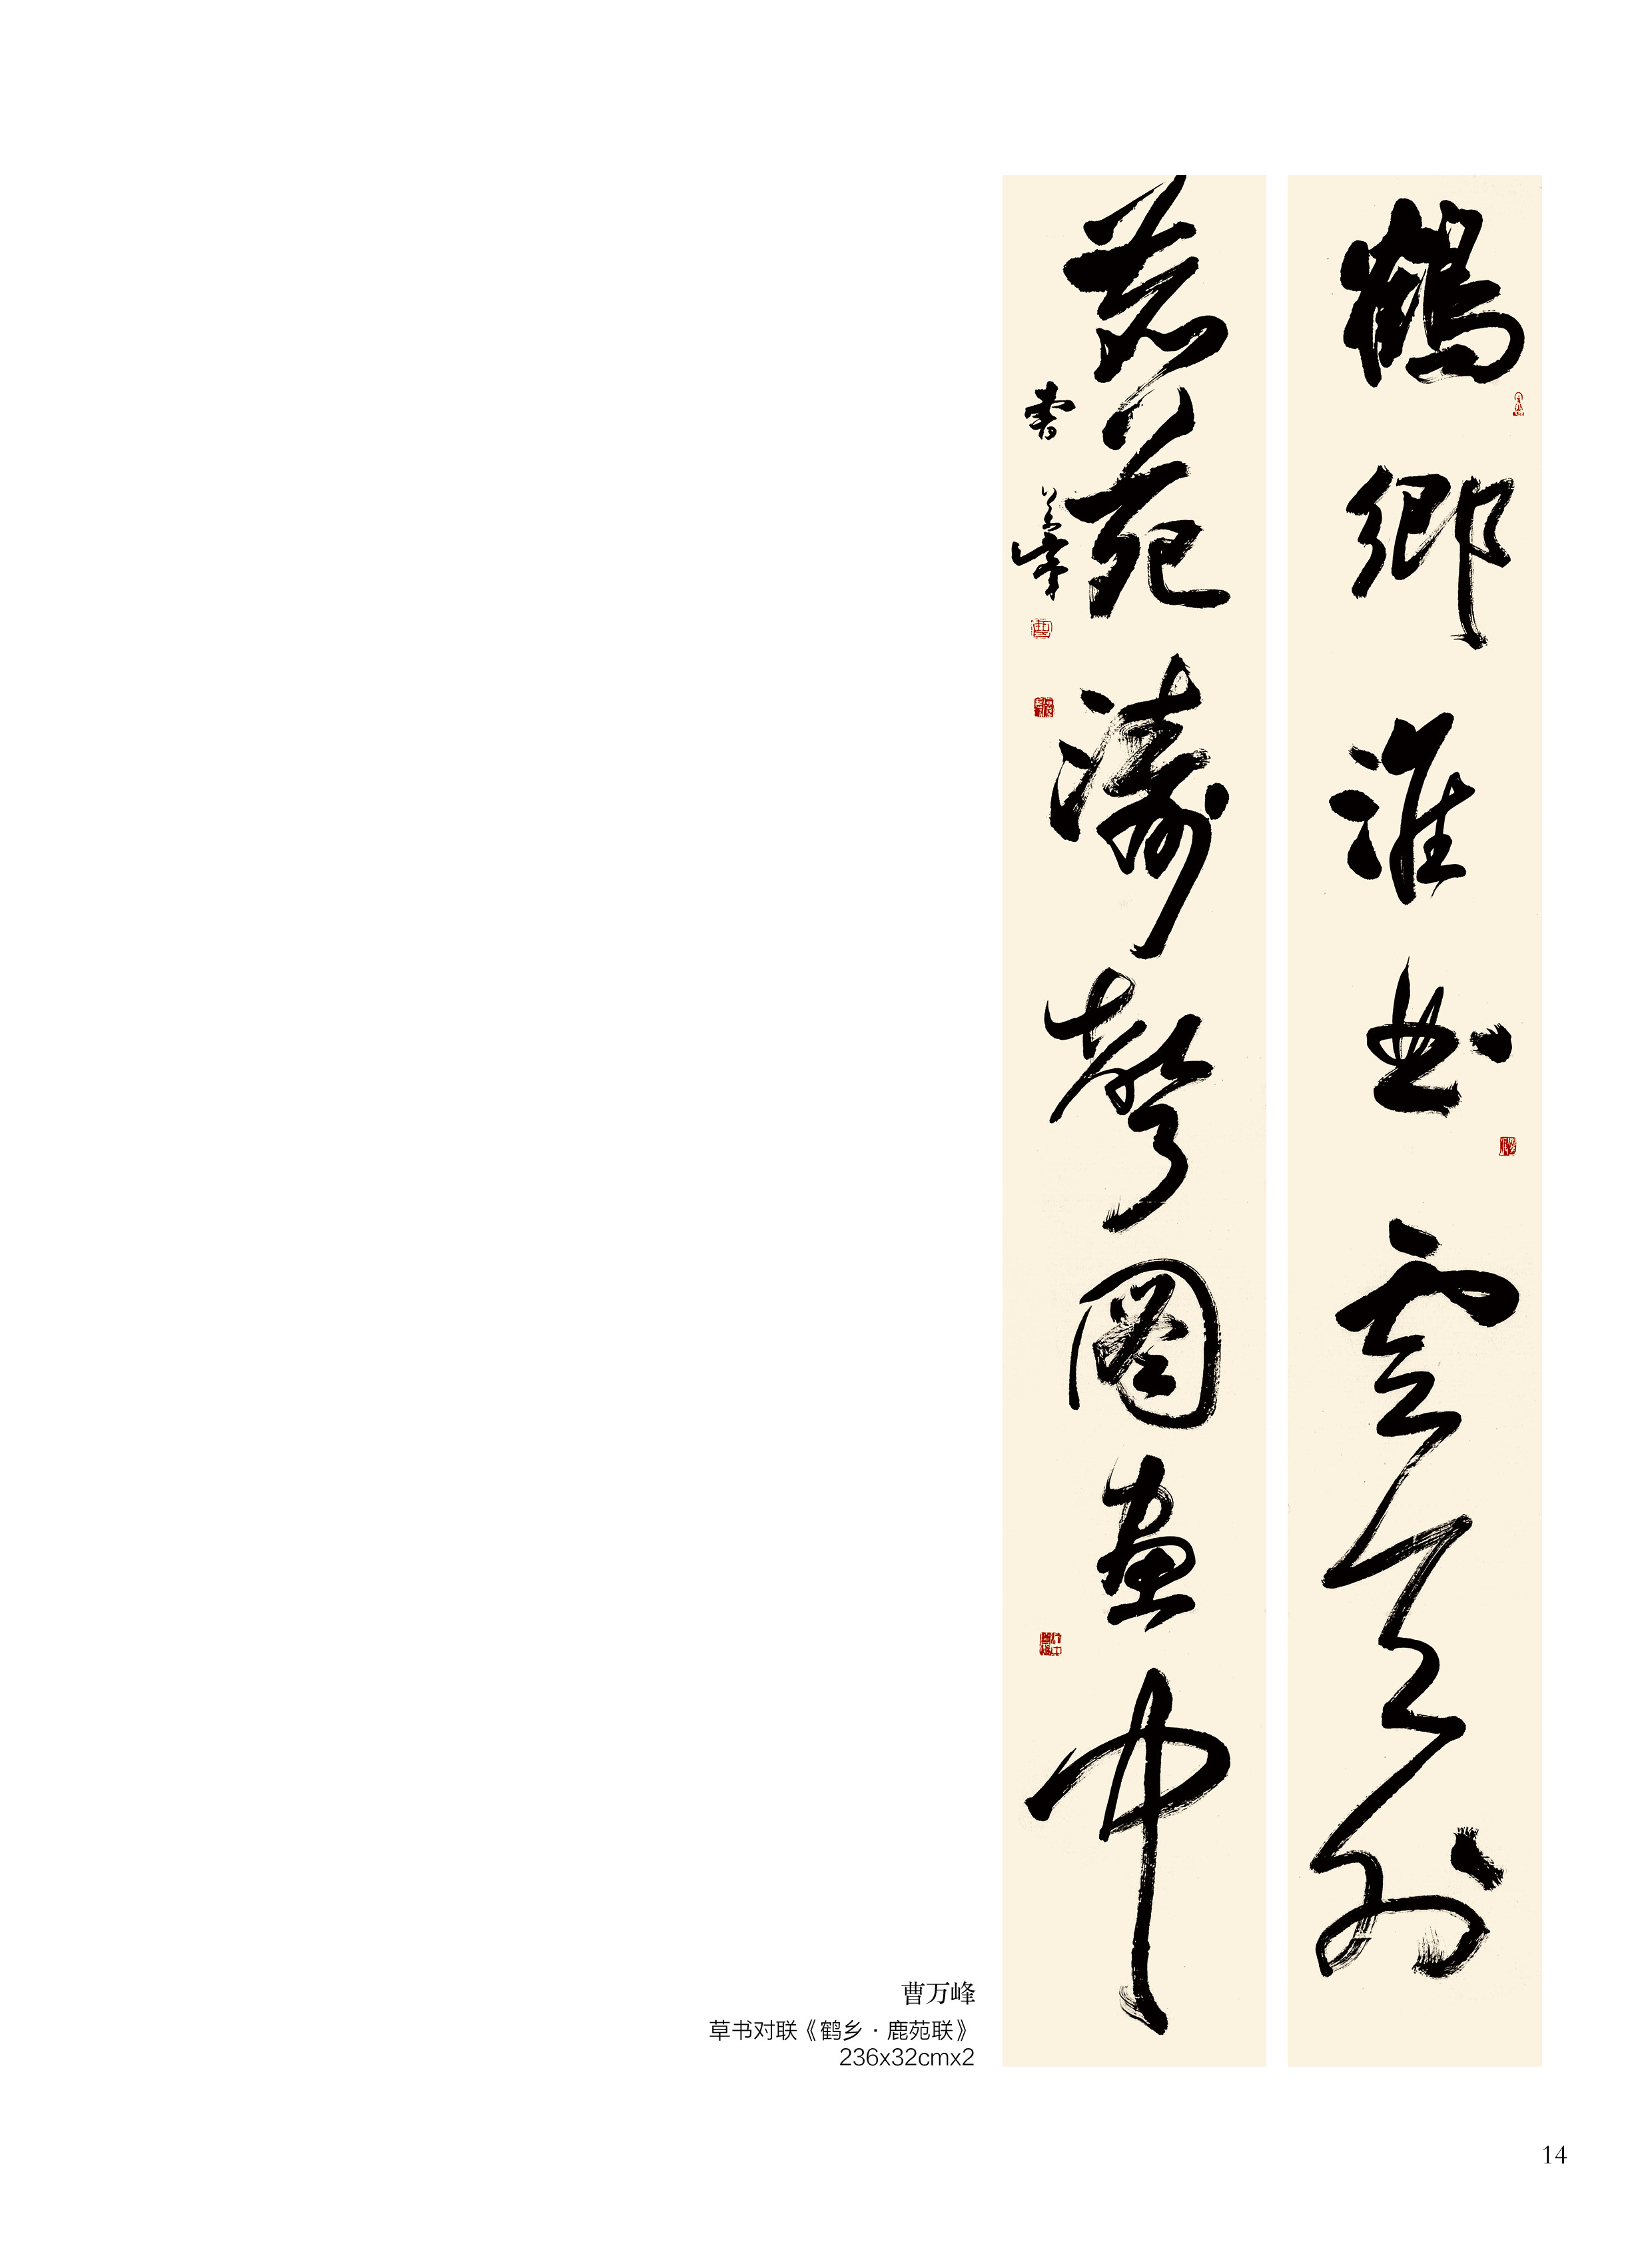 鶴鄉淮曲雲天外
鹿苑濤聲圖畫中
曹萬峰
曹万峰
草书对联《鹤乡·鹿苑联》
236x32cmx2
14